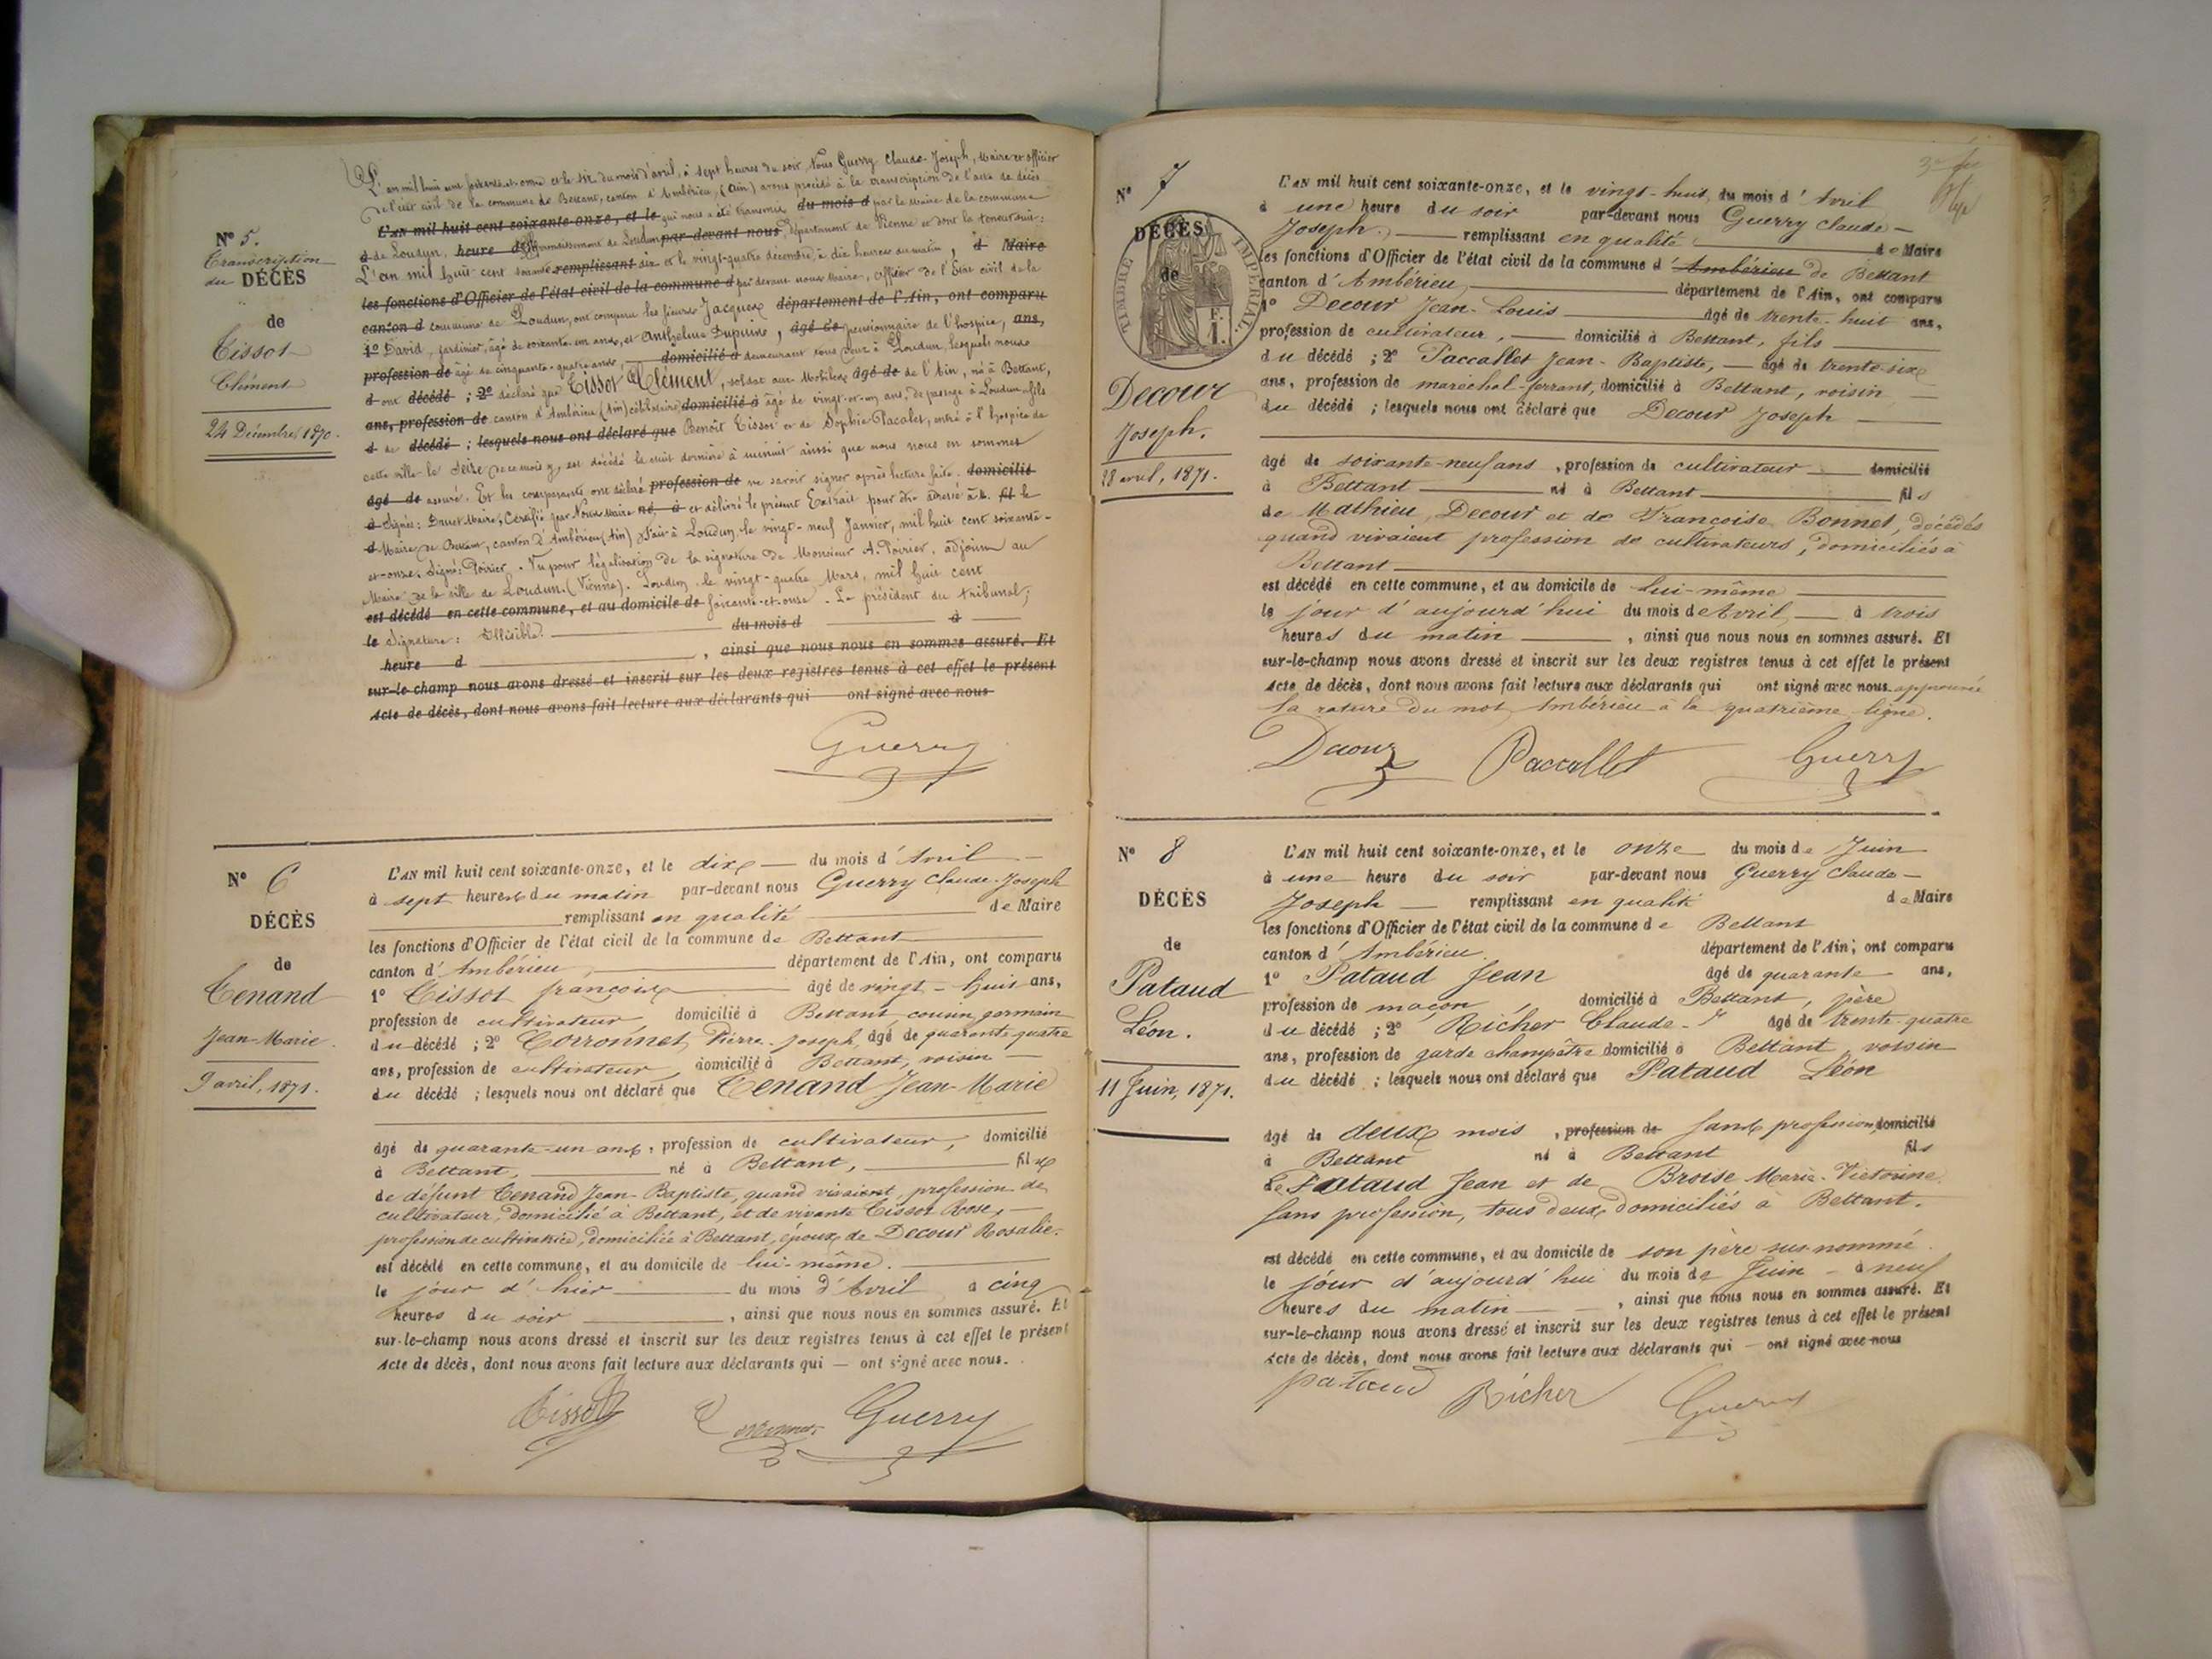 Nº 5.
Transcription
du DÉCÈS
de
Tissot
Clément
24 Décembre 1870.
L'an mil huit cent soixante-et-onze et le six du mois d'avril, à sept heures du soir Nous Guerry Claude-Joseph, Maire et officier
de l'état civil de la commune de Bettant, canton d'Ambérieu, (Ain) avons procédé à la transcription de l'acte de décès
L'AN mil huit cent soixante-onze, et le qui nous a été transmis du mois d par le Maire de la commune
d de Loudun, heure d arrondissement de Loudun par-devant nous, département de Vienne et dont la teneur suit:
L'an mil huit cent soixante remplissant dix et le vingt-quatre décembre, à dix heures du matin, d Maire
les fonctions d'Officier de l'état civil de la commune d par devant nous Maire, officier de l'État civil de la
canton d commune de Loudun, ont comparu les sieurs Jacques département de l'Ain, ont comparu
1º David, jardinier, âgé de soixante-un ans, et Anthelme Dupuine, âgé de pensionnaire de l'hospice, ans,
profession de âgé de cinquante-quatre ans, domicilié à demeurant tous deux à Loudun, lesquels nous
d ont décédé ; 2º déclaré que Tissot Clément, soldat aux Mobiles âgé de de l'Ain, né à Bettant,
ans, profession de canton d'Ambérieu (Ain) célibataire domicilié à âgé de vingt-et-un ans, de passage à Loudun, fils
d de décédé ; lesquels nous ont déclaré que Benoît Tissot et de Sophie Pacalet, entré à l'hospice de
cette ville le seize de ce mois, est décédé la nuit dernière à minuit ainsi que nous nous en sommes
âgé de assuré. Et les comparants ont déclaré profession de ne savoir signer après lecture faite. domicilié
à Signé: Maire, Certifié par Nous Maire né à et délivré le présent Extrait pour être adressé à M. fil le
d Maire de Bettant, canton d'Ambérieu (Ain) Fait à Loudun, le vingt-neuf Janvier, mil huit cent soixante-
et-onze. Signé: Poirier. Vu pour légalisation de la signature de Monsieur A. Poirier, adjoint au
Maire de la ville de Loudun. (Vienne). Loudun, le vingt-quatre Mars, mil huit cent
est décédé en cette commune, et au domicile de soixante-et-onze. Le président du tribunal;
le Signature: Illisible. du mois d à
heure d , ainsi que nous nous en sommes assuré. Et
sur-le-champ nous avons dressé et inscrit sur les deux registres tenus à cet effet le présent
Acte de décès, dont nous avons fait lecture aux déclarants qui ont signé avec nous
Guerry
Nº 6
DÉCÈS
de
Tenand
Jean-Marie.
9 avril, 1871.
L'AN mil huit cent soixante-onze, et le dix du mois d'Avril
à sept heures du matin par-devant nous Guerry Claude-Joseph
remplissant en qualité de Maire
les fonctions d'Officier de l'état civil de la commune de Bettant
canton d'Ambérieu, département de l'Ain, ont comparu
1º Tissot françois âgé de vingt-huit ans,
profession de cultivateur domicilié à Bettant cousin germain
du décédé ; 2º Corronnet, Pierre-Joseph, âgé de quarante quatre
ans, profession de cultivateur, domicilié à Bettant, voisin
du décédé ; lesquels nous ont déclaré que Tenand Jean-Marie
âgé de quarante-un ans, profession de cultivateur, domicilié
à Bettant, né à Bettant, fils
de défunt Tenand Jean-Baptiste, quand vivaient, profession de
cultivateur, domicilié à Bettant, et de vivante Tissot Rose,
profession de cultivatrice, domiciliée à Bettant, époux de Decour Rosalie.
est décédé en cette commune, et au domicile de lui-même.
le jour d'hier du mois d'Avril à cinq
heures du soir , ainsi que nous nous en sommes assuré. Et
sur-le-champ nous avons dressé et inscrit sur les deux registres tenus à cet effet le présent
Acte de décès, dont nous avons fait lecture aux déclarants qui — ont signé avec nous.
Tissot Corronnet Guerry
Nº 7
DÉCÈS
de
TIMBRE IMPÉRIAL
1 F.
Decour
Joseph.
28 avril, 1871.
L'AN mil huit cent soixante-onze, et le vingt-huit, du mois d'Avril
à une heure du soir par-devant nous Guerry Claude-
Joseph. remplissant en qualité de Maire
les fonctions d'Officier de l'état civil de la commune d'Ambérieu de Bettant
canton d'Ambérieu, département de l'Ain, ont comparu
1º Decour Jean-Louis âgé de trente-huit ans,
profession de cultivateur, domicilié à Bettant, fils
du décédé ; 2º Paccallet Jean-Baptiste, âgé de trente-six
ans, profession de maréchal-ferrant, domicilié à Bettant, voisin
du décédé ; lesquels nous ont déclaré que Decour Joseph
âgé de soixante-neuf ans , profession de cultivateur domicilié
à Bettant né à Bettant fils
de Mathieu Decour et de Françoise Bonnet, décédés
quand vivaient profession de cultivateurs, domiciliés à
Bettant
est décédé en cette commune, et au domicile de lui-même
le jour d'aujourd'hui du mois de Avril, à trois
heures du matin , ainsi que nous nous en sommes assuré. Et
sur-le-champ nous avons dressé et inscrit sur les deux registres tenus à cet effet le présent
Acte de décès, dont nous avons fait lecture aux déclarants qui ont signé avec nous approuvé
la rature du mot Ambérieu à la quatrième ligne.
Decour Paccallet Guerry
Nº 8
DÉCÈS
de
Pataud
Léon.
11 Juin, 1871.
L'AN mil huit cent soixante-onze, et le onze du mois de Juin
à une heure du soir par-devant nous Guerry Claude-
Joseph remplissant en qualité de Maire
les fonctions d'Officier de l'état civil de la commune de Bettant
canton d'Ambérieu département de l'Ain, ont comparu
1º Pataud Jean âgé de quarante ans,
profession de maçon, domicilié à Bettant, père
du décédé ; 2º Richer Claude-J âgé de trente-quatre
ans, profession de garde champêtre domicilié à Bettant voisin
du décédé ; lesquels nous ont déclaré que Pataud Léon
âgé de deux mois , profession de sans profession, domicilié
à Bettant né à Bettant fils
de Pataud Jean et de Broise Marie-Victorine,
sans profession, tous deux domiciliés à Bettant.
est décédé en cette commune, et au domicile de son père sus-nommé.
le jour d'aujourd'hui du mois de Juin - à neuf
heures du matin , ainsi que nous nous en sommes assuré. Et
sur-le-champ nous avons dressé et inscrit sur les deux registres tenus à cet effet le présent
Acte de décès, dont nous avons fait lecture aux déclarants qui — ont signé avec nous
pataud Richer Guerry